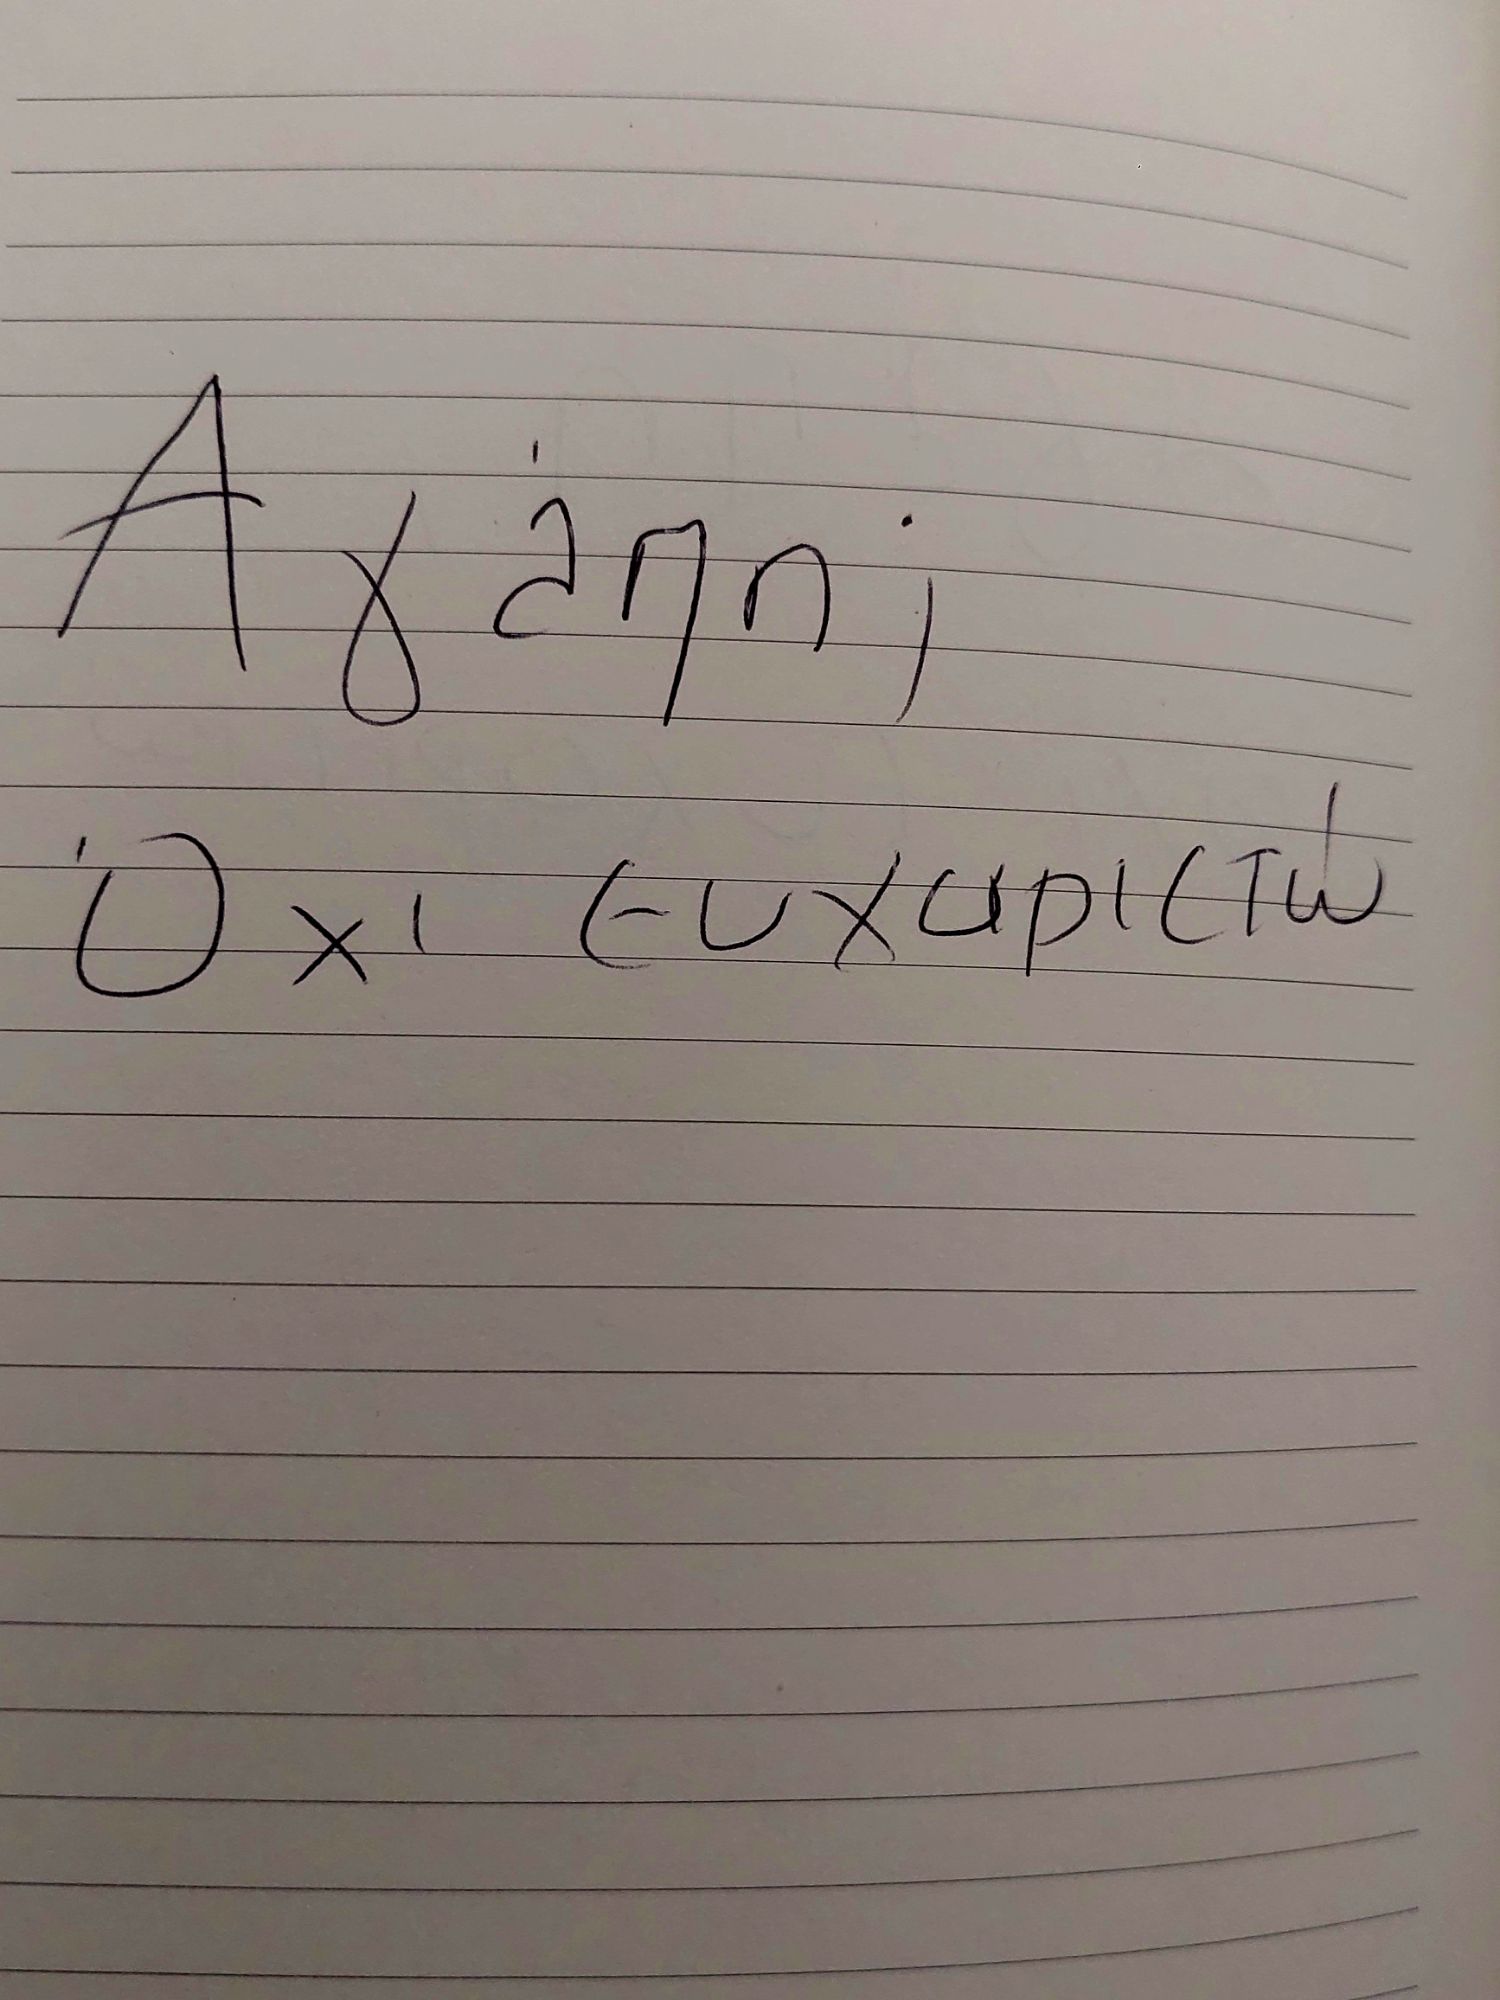 Αγάπη;
Όχι ευχαριστώ